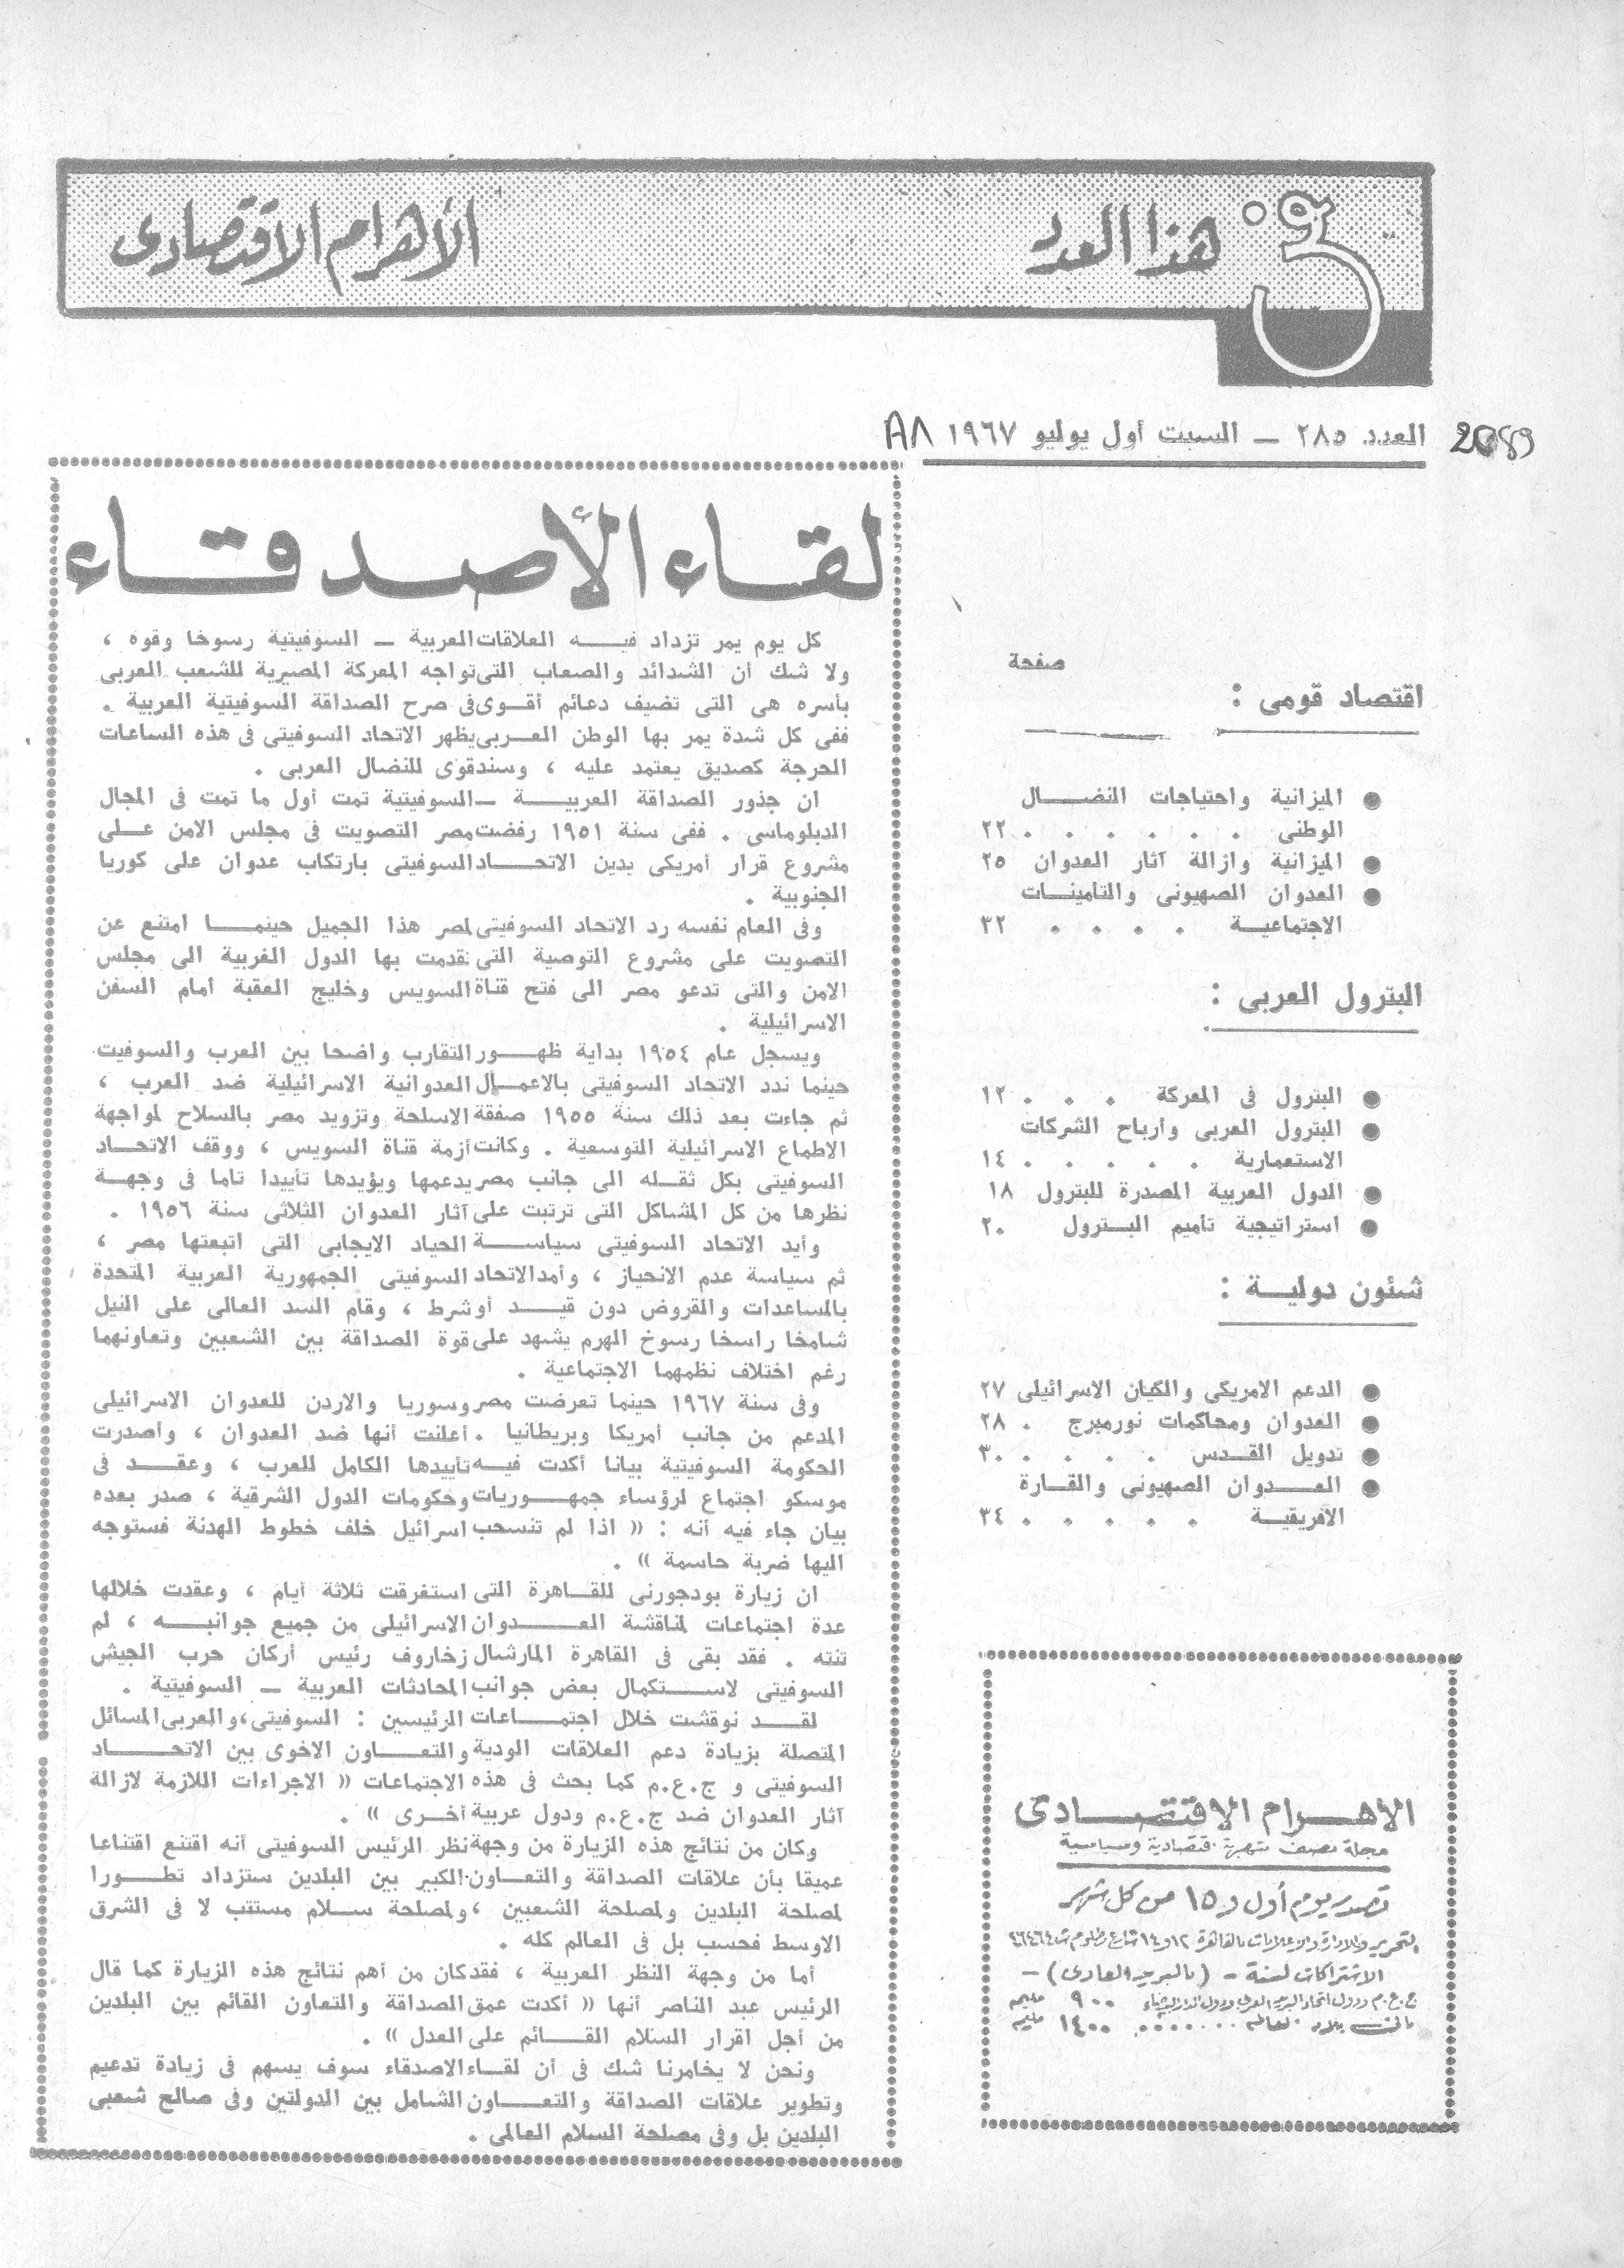 في هذا العدد
الأهرام الاقتصادى
العدد ٢٨٥ — السبت أول يوليو ١٩٦٧
٨٨
2089
صفحة
اقتصاد قومى :
● الميزانية واحتياجات النضـــال
الوطنى . . . . . . ٢٢
● الميزانية وازالة آثار العدوان ٢٥
● العدوان الصهيونى والتأمينـات
الاجتماعيـة . . . . ٣٢
البترول العربى :
● البترول فى المعركة . . . ١٢
● البترول العربى وأرباح الشركات
الاستعمارية . . . . . ١٤
● الدول العربية المصدرة للبترول ١٨
● استراتيجية تأميم البـترول ٢٠
شئون دوليـة :
● الدعم الامريكى والكيان الاسرائيلى ٢٧
● العدوان ومحاكمات نورمبرج . ٢٨
● تدويل القـدس . . . . . ٣٠
● العـــدوان الصهيونى والقـارة
الافريقيـة . . . . . ٣٤
الأهـرام الاقتصـادى
مجلة نصف شهرية اقتصادية وسياسية
تصدر يوم أول و ١٥ من كل شهر
التحرير والادارة والاعلانات بالقاهرة ١٢ و ١٤ شارع مظلوم ت ٤٦٤٦٤
الاشتراكات لسنة — (بالبريد العادى) —
ج.ع.م ودول اتحاد البريد العربى ودول الدار البيضاء ٩٠٠ مليم
باقى بلاد العالم ........ ١٤٠٠ مليم
لقـاء الأصدقـاء
كل يوم يمر تزداد فيـــه العلاقات العربية — السوفيتية رسوخا وقوه ،
ولا شك أن الشدائد والصعاب التى تواجه المعركة المصيرية للشعب العربى
بأسره هى التى تضيف دعائم أقـوى فى صرح الصداقة السوفيتية العربية .
ففى كل شدة يمر بها الوطن العـربى يظهر الاتحاد السوفيتى فى هذه الساعات
الحرجة كصديق يعتمد عليه ، وسند قوى للنضال العربى .
ان جذور الصداقة العربيـــة — السوفيتية تمت أول ما تمت فى المجال
الدبلوماسى . ففى سنة ١٩٥١ رفضت مصر التصويت فى مجلس الامن عـلى
مشروع قرار أمريكى يدين الاتحـــاد السوفيتى بارتكاب عدوان على كوريا
الجنوبية .
وفى العام نفسه رد الاتحاد السوفيتى لمصر هذا الجميل حينمـــا امتنع عن
التصويت على مشروع التوصية التى تقدمت بها الدول الغربية الى مجلس
الامن والتى تدعو مصر الى فتح قناة السويس وخليج العقبة أمام السفن
الاسرائيلية .
ويسجل عام ١٩٥٤ بداية ظهــور التقارب واضحا بين العرب والسوفيت
حينما ندد الاتحاد السوفيتى بالاعمـال العدوانية الاسرائيلية ضد العرب ،
ثم جاءت بعد ذلك سنة ١٩٥٥ صفقة الاسلحة وتزويد مصر بالسلاح لمواجهة
الاطماع الاسرائيلية التوسعية . وكانت أزمة قناة السويس ، ووقف الاتحـاد
السوفيتى بكل ثقـله الى جانب مصر يدعمها ويؤيدها تأييدا تاما فى وجهـة
نظرها من كل المشاكل التى ترتبت على آثار العدوان الثلاثى سنة ١٩٥٦ .
وأيد الاتحاد السوفيتى سياســة الحياد الايجابى التى اتبعتها مصر ،
ثم سياسة عدم الانحياز ، وأمد الاتحاد السوفيتى الجمهورية العربية المتحدة
بالمساعدات والقروض دون قيـد أو شرط ، وقام السد العالى على النيل
شامخا راسخا رسوخ الهرم يشهد على قوة الصداقة بين الشعبين وتعاونهما
رغم اختلاف نظمهما الاجتماعية .
وفى سنة ١٩٦٧ حينما تعرضت مصر وسوريا والاردن للعدوان الاسرائيلى
المدعم من جانب أمريكا وبريطانيا . أعلنت أنها ضد العدوان ، وأصدرت
الحكومة السوفيتية بيانا أكدت فيـه تأييدها الكامل للعرب ، وعقـد فى
موسكو اجتماع لرؤساء جمهــوريات وحكومات الدول الشرقية ، صدر بعده
بيان جاء فيه أنه : « اذا لم تنسحب اسرائيل خلف خطوط الهدنة فستوجه
اليها ضربة حاسمة » .
ان زيارة بودجورنى للقـاهرة التى استغرقت ثلاثة أيام ، وعقدت خلالها
عدة اجتماعات لمناقشة العـــدوان الاسرائيلى من جميع جوانبـــه ، لم
تنته . فقد بقى فى القاهرة المارشال زخاروف رئيس أركان حرب الجيش
السوفيتى لاســتكمال بعض جوانب المحادثات العربية — السوفيتية .
لقـد نوقشت خلال اجتمـاعات الرئيسين : السوفيتى، والعربى المسائل
المتصلة بزيادة دعم العلاقات الودية والتعـاون الاخوى بين الاتحـــاد
السوفيتى و ج.ع.م كما بحث فى هذه الاجتماعات « الاجراءات اللازمة لازالة
آثار العدوان ضد ج.ع.م ودول عربية أخـرى » .
وكان من نتائج هذه الزيارة من وجهة نظر الرئيس السوفيتى أنه اقتنع اقتناعا
عميقا بأن علاقات الصداقة والتعـاون الكبير بين البلدين ستزداد تطــورا
لمصلحة البلدين ولمصلحة الشعبين ، ولمصلحة ســلام مستتب لا فى الشرق
الاوسط فحسب بل فى العالم كله .
أما من وجهة النظر العربية ، فقد كان من أهم نتائج هذه الزيارة كما قال
الرئيس عبد الناصر أنها « أكدت عمق الصداقة والتعاون القائم بين البلدين
من أجل اقرار السلام القـــائم على العدل » .
ونحن لا يخامرنا شك فى أن لقـاء الاصدقاء سوف يسهم فى زيادة تدعيم
وتطوير علاقات الصداقة والتعـــاون الشامل بين الدولتين وفى صالح شعبى
البلدين بل وفى مصلحة السلام العالمى .